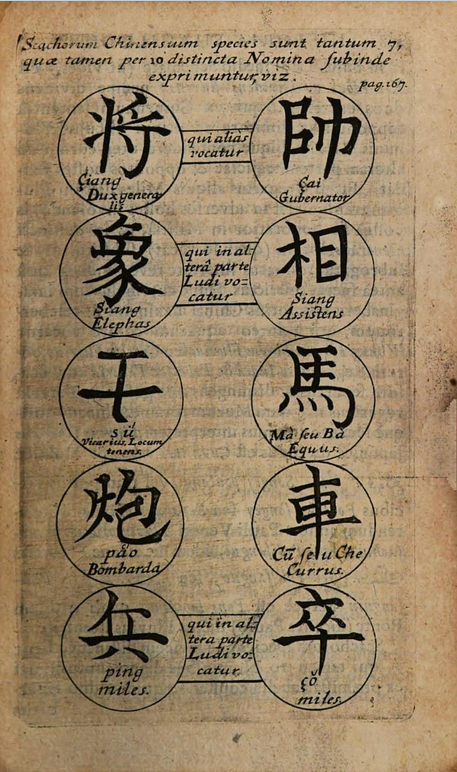 Scachorum Chinensium species sunt tantum 7,
quæ tamen per 10 distincta Nomina subinde
exprimuntur, viz.
pag. 167.
將
Çiang
Dux genera
lis
qui aliàs
vocatur
帥
Çai
Gubernator
象
Siang
Elephas
qui in al=
terâ parte
Ludi vo=
catur
相
Siang
Assistens
士
sú
Vicarius, Locum
tenens.
馬
Mà seu Bà
Equus.
炮
páo
Bombarda
車
Cū seu Che
Currus.
兵
ping
miles.
qui in al=
tera parte
Ludi vo=
catur
卒
çǒ
miles.